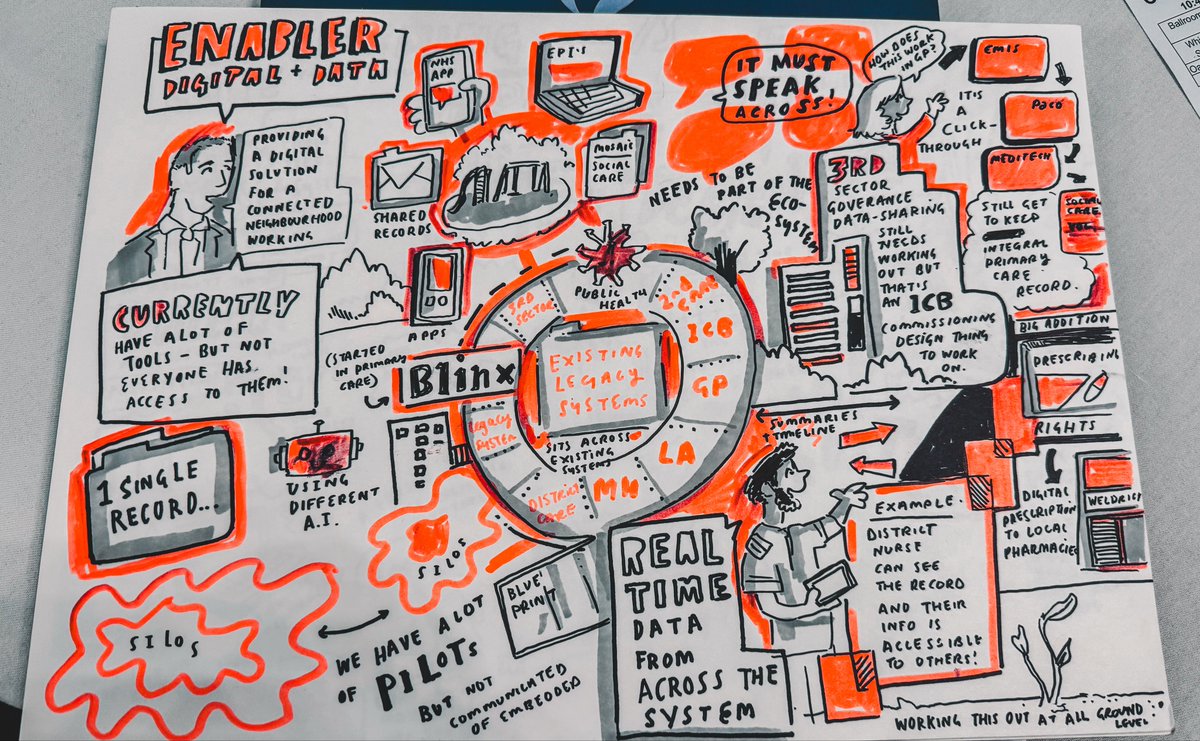 ENABLER
DIGITAL + DATA
PROVIDING
A DIGITAL
SOLUTION
FOR A
CONNECTED
NEIGHBOURHOOD
WORKING
CURRENTLY
HAVE A LOT OF
TOOLS - BUT NOT
EVERYONE HAS
ACCESS TO THEM!
1 SINGLE
RECORD..
USING
DIFFERENT
A.I.
SILOS
SILOS
WE HAVE A LOT
OF PILOTS
BUT NOT
COMMUNICATED
OF EMBEDDED
NHS
APP
EPI'S
SHARED
RECORDS
MOSAIC
SOCIAL
CARE
APPS
(STARTED
IN PRIMARY
CARE)
Blinx
EXISTING
LEGACY
SYSTEMS
SITS ACROSS
EXISTING
SYSTEMS
3RD
SECTOR
PUBLIC HEALTH
2nd CARE
ICB
GP
LA
MH
DISTRICT
CARE
Legacy
SYSTEM
BLUE'
PRINT
IT MUST
SPEAK,
ACROSS!
NEEDS TO BE
PART OF THE
ECO-
SYSTEM
HOW DOES
THIS WORK
IN GP?
IT'S
A
CLICK-
THROUGH
EMIS
PACO
MEDITECH
SOCIAL
CARE
STILL GET
TO KEEP
INTEGRAL
PRIMARY
CARE
RECORD.
3RD
SECTOR
GOVERANCE.
DATA-SHARING
STILL
NEEDS
WORKING
OUT BUT
THAT'S
AN ICB
COMMISSIONING
DESIGN THING
TO WORK
ON.
BIG ADDITION
PRESCRIBING
RIGHTS
DIGITAL
PRESCRIPTION
TO LOCAL
PHARMACIES
WELDRICK
SUMMARIES
+ TIMELINE
REAL
TIME
DATA
FROM
ACROSS THE
SYSTEM
EXAMPLE.
DISTRICT
NURSE
CAN SEE
THE RECORD
AND THEIR
INFO IS
ACCESSIBLE
TO OTHERS!
WORKING THIS OUT AT ALL GROUND
LEVEL
10:4
Ballroom